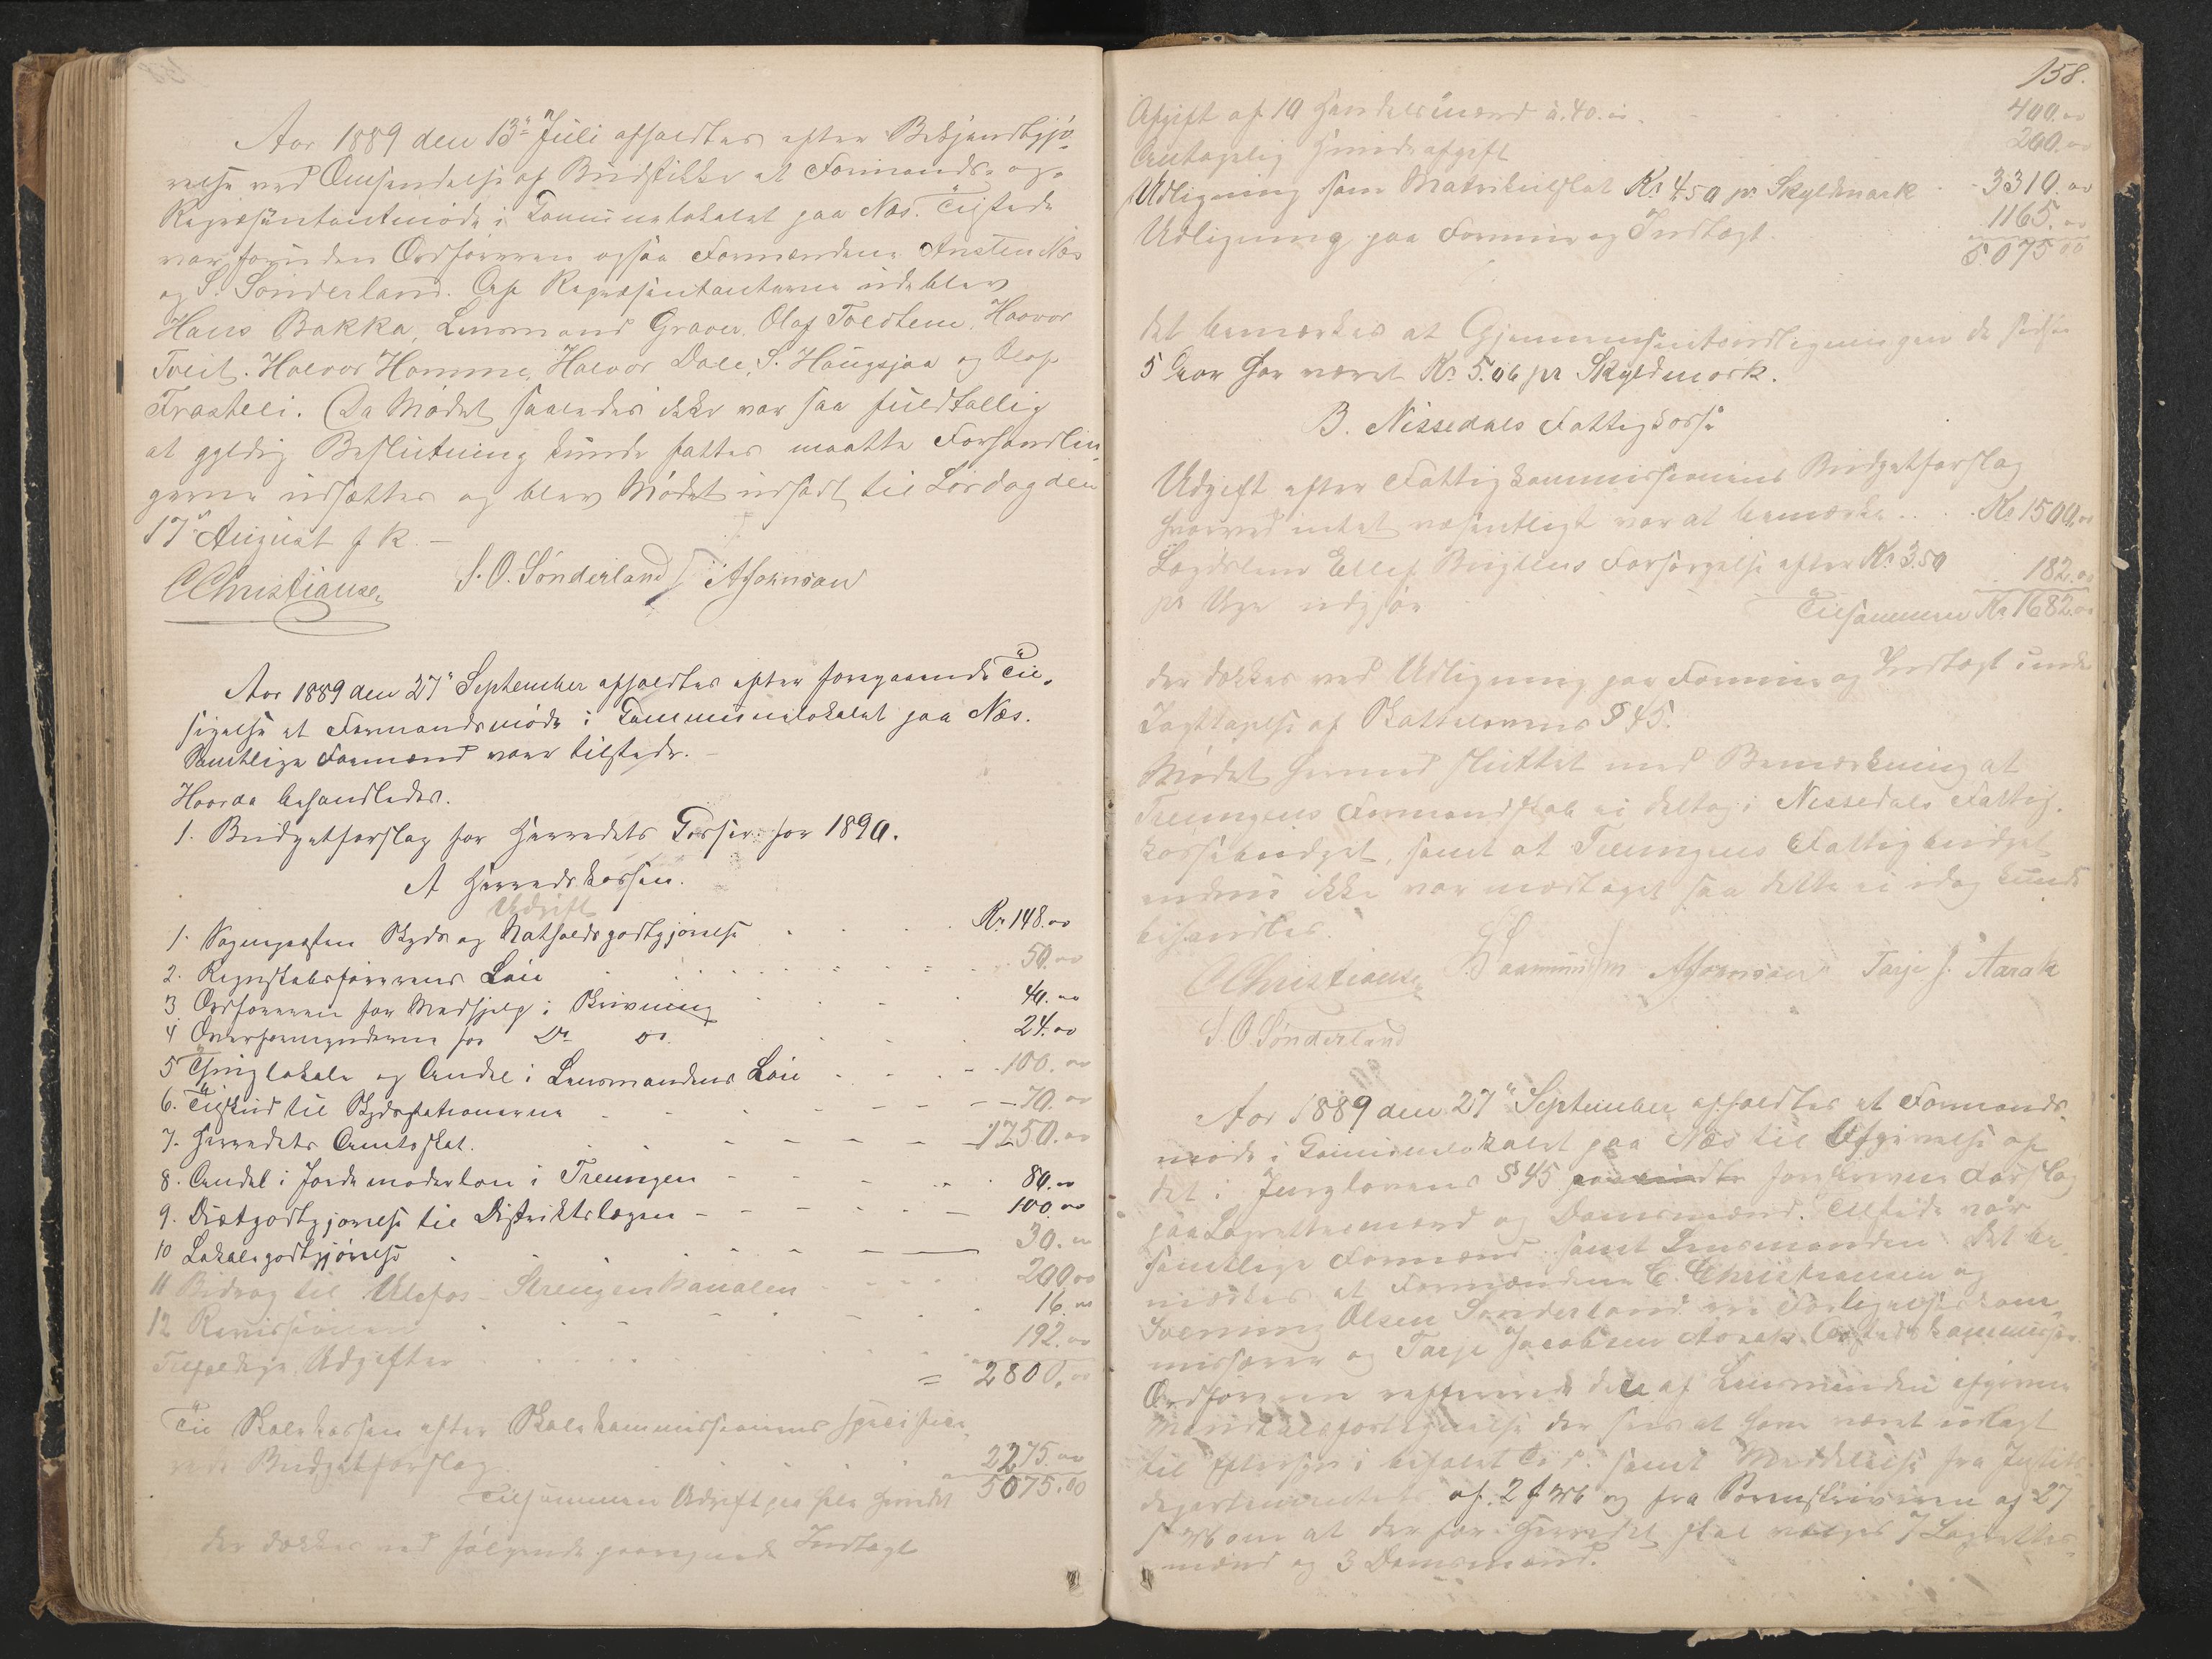 Aar 1889 den 13de Juli afholdtes efter Bekjendtgjö-
relse ved Omsendelse af Budstikke et Formands- og
Repræsentantmöde i Communelokalet paa Næs. Tilstede
var foruden Ordföreren ogsaa Formændene Austen Næs
og S. Sönderland. Af Repræsentanterne udeblev
Hans Bakka, Lensmand Graver, Olaf Tveitene, Haavor
Tveit. Halvor Homme, Halvor Dale, S. Haugsjaa og Olaf
Frasteli. Da Mödet saaledes ikke var saa fuldtallig
at gyldig Beslutning kunde fattes maatte Forhandlin-
gerne udsættes og blev Mödet udsadt til Lördag den
17de August f. k. –
CChristiansen S. O. Sønderland AAsmundsen
Aar 1889 den 27de September afholdtes efter foregaaende Til-
sigelse et Formandsmöde i Communelokalet paa Næs.
Samtlige Formænd vare tilstede. –
Hvorda behandledes.
1. Budgetforslag for Herredets Casser for 1890.
A Herredskassen.
Udgift
1. Sogneprestens Skyds og Natholdsgodtgjörelse Kr 148.00
2. Regnskabsförerens Lön 50.00
3 Ordföreren for Medhjelp i Skrivning 40.00
4 Overformynderne for Do Do 24.00
5 Thinglokale og Andel i Lensmandens Lön 100.00
6. Tilskud til Skydsstationerne 70.00
7. Herredets Amtsskat. 1750.00
8. Andel i Jordemoderlön i Treungen 80.00
9. Diætgodtgjörelse til Distriktslægen 100.00
10 Lokalegodtgjörelse 30.00
11 Bidrag til Ulefos-Strengenkanalen 200.00
12 Revisionen 16.00
Tilfeldige Udgifter 192.00
= 2800.00
Til Skolekassen efter Skolekommissionens specifice-
rede Budgetforslag 2275.00
Tilsammen Udgift paa hele Herredet 5075.00
der dækkes ved fölgende paaregnede Indtægt
158.
Afgift af 10 Handelsmænd à 40.00 400.00
Antagelig Hundeafgift 200.00
Udligning som Matrikulskat Kr 4.50 pr. Skyldmark 3310.00
Udligning paa Formue og Indtægt 1165.00
5.075.00
det bemærkes at Gjennemsnitsudligningen de sidste
5 Aar har været Kr 5.06 pr Skyldmark.
B. Nissedals Fattigkasse
Udgift efter Fattigkommissionens Budgetforslag
hvorved intet væsentligt var at bemærke Kr 1500.00
Lægdslem Ellef Bryttens Forsörgelse efter Kr 3.50
pr Uge udgjör 182.00
Tilsammen Kr 1682.00
der dækkes ved Udligning paa Formue og Indtægt under
Iagttagelse af Skattelovens § 45.
Mödet hermed sluttet med Bemærkning at
Treungens Formandskab ei deltog i Nissedals Fattig-
kassebudget, samt at Treungens Fattigbudget
endnu ikke var modtaget saa dette ei idag kunde
behandles.
CChristiansen AAsmundsen Tarje J. Aarak
S. O. Sønderland
Aar 1889 den 27de September afholdtes et Formands-
möde i Communelokalet paa Næs til Afgivelse af
det i Jurylovens § 45 foreskrevne Forslag
paa Lagrettesmænd og Domsmænd. Tilstede var
samtlige Formænd samt Lensmanden. Det be-
mærkes at Formændene C. Christiansen og
Svenning Olsen Sönderland ere Forligelseskom-
missærer og Tarje Jacobsen Aarak
Ordföreren refererede den af Lensmanden afgivne
Mandtalsfortegnelse der sees at have været udlagt
til Eftersyn i befalet Tid. samt Meddelelse fra Justits-
departementet af 2 f M og fra Sorenskriveren af 27
f M om at der for Herredet skal vælges 7 Lagrettes-
mænd og 3 Domsmænd.